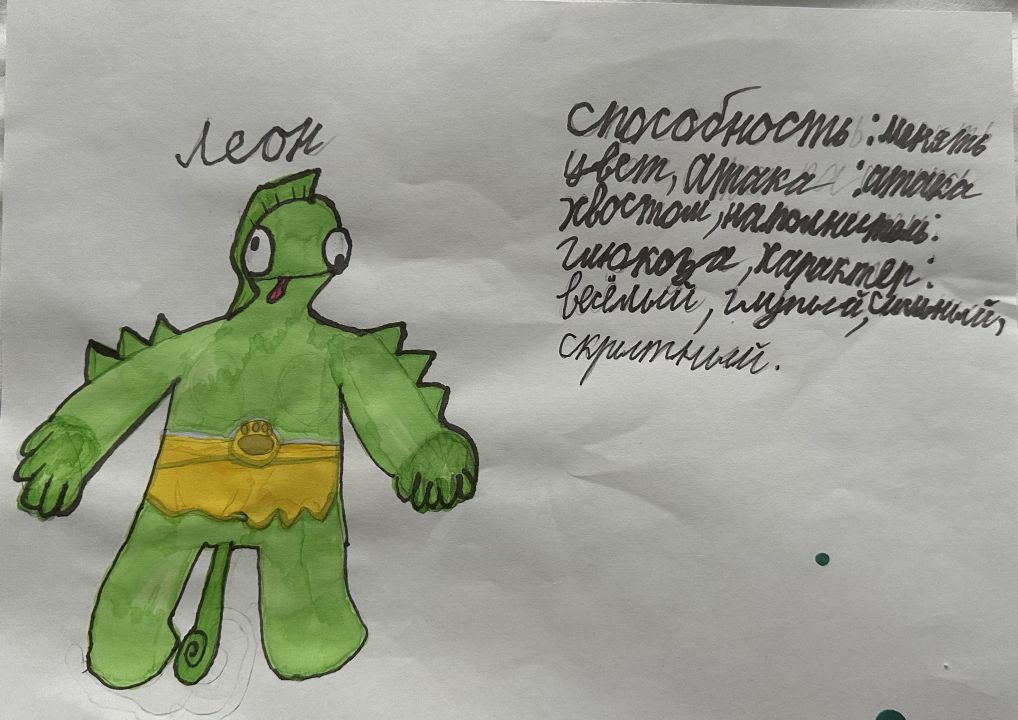 Леон
способность: менять
цвет, атака: атака
хвостом, наполнитель:
глюкоза, характер:
весёлый, глупый, сильный,
скрытный.